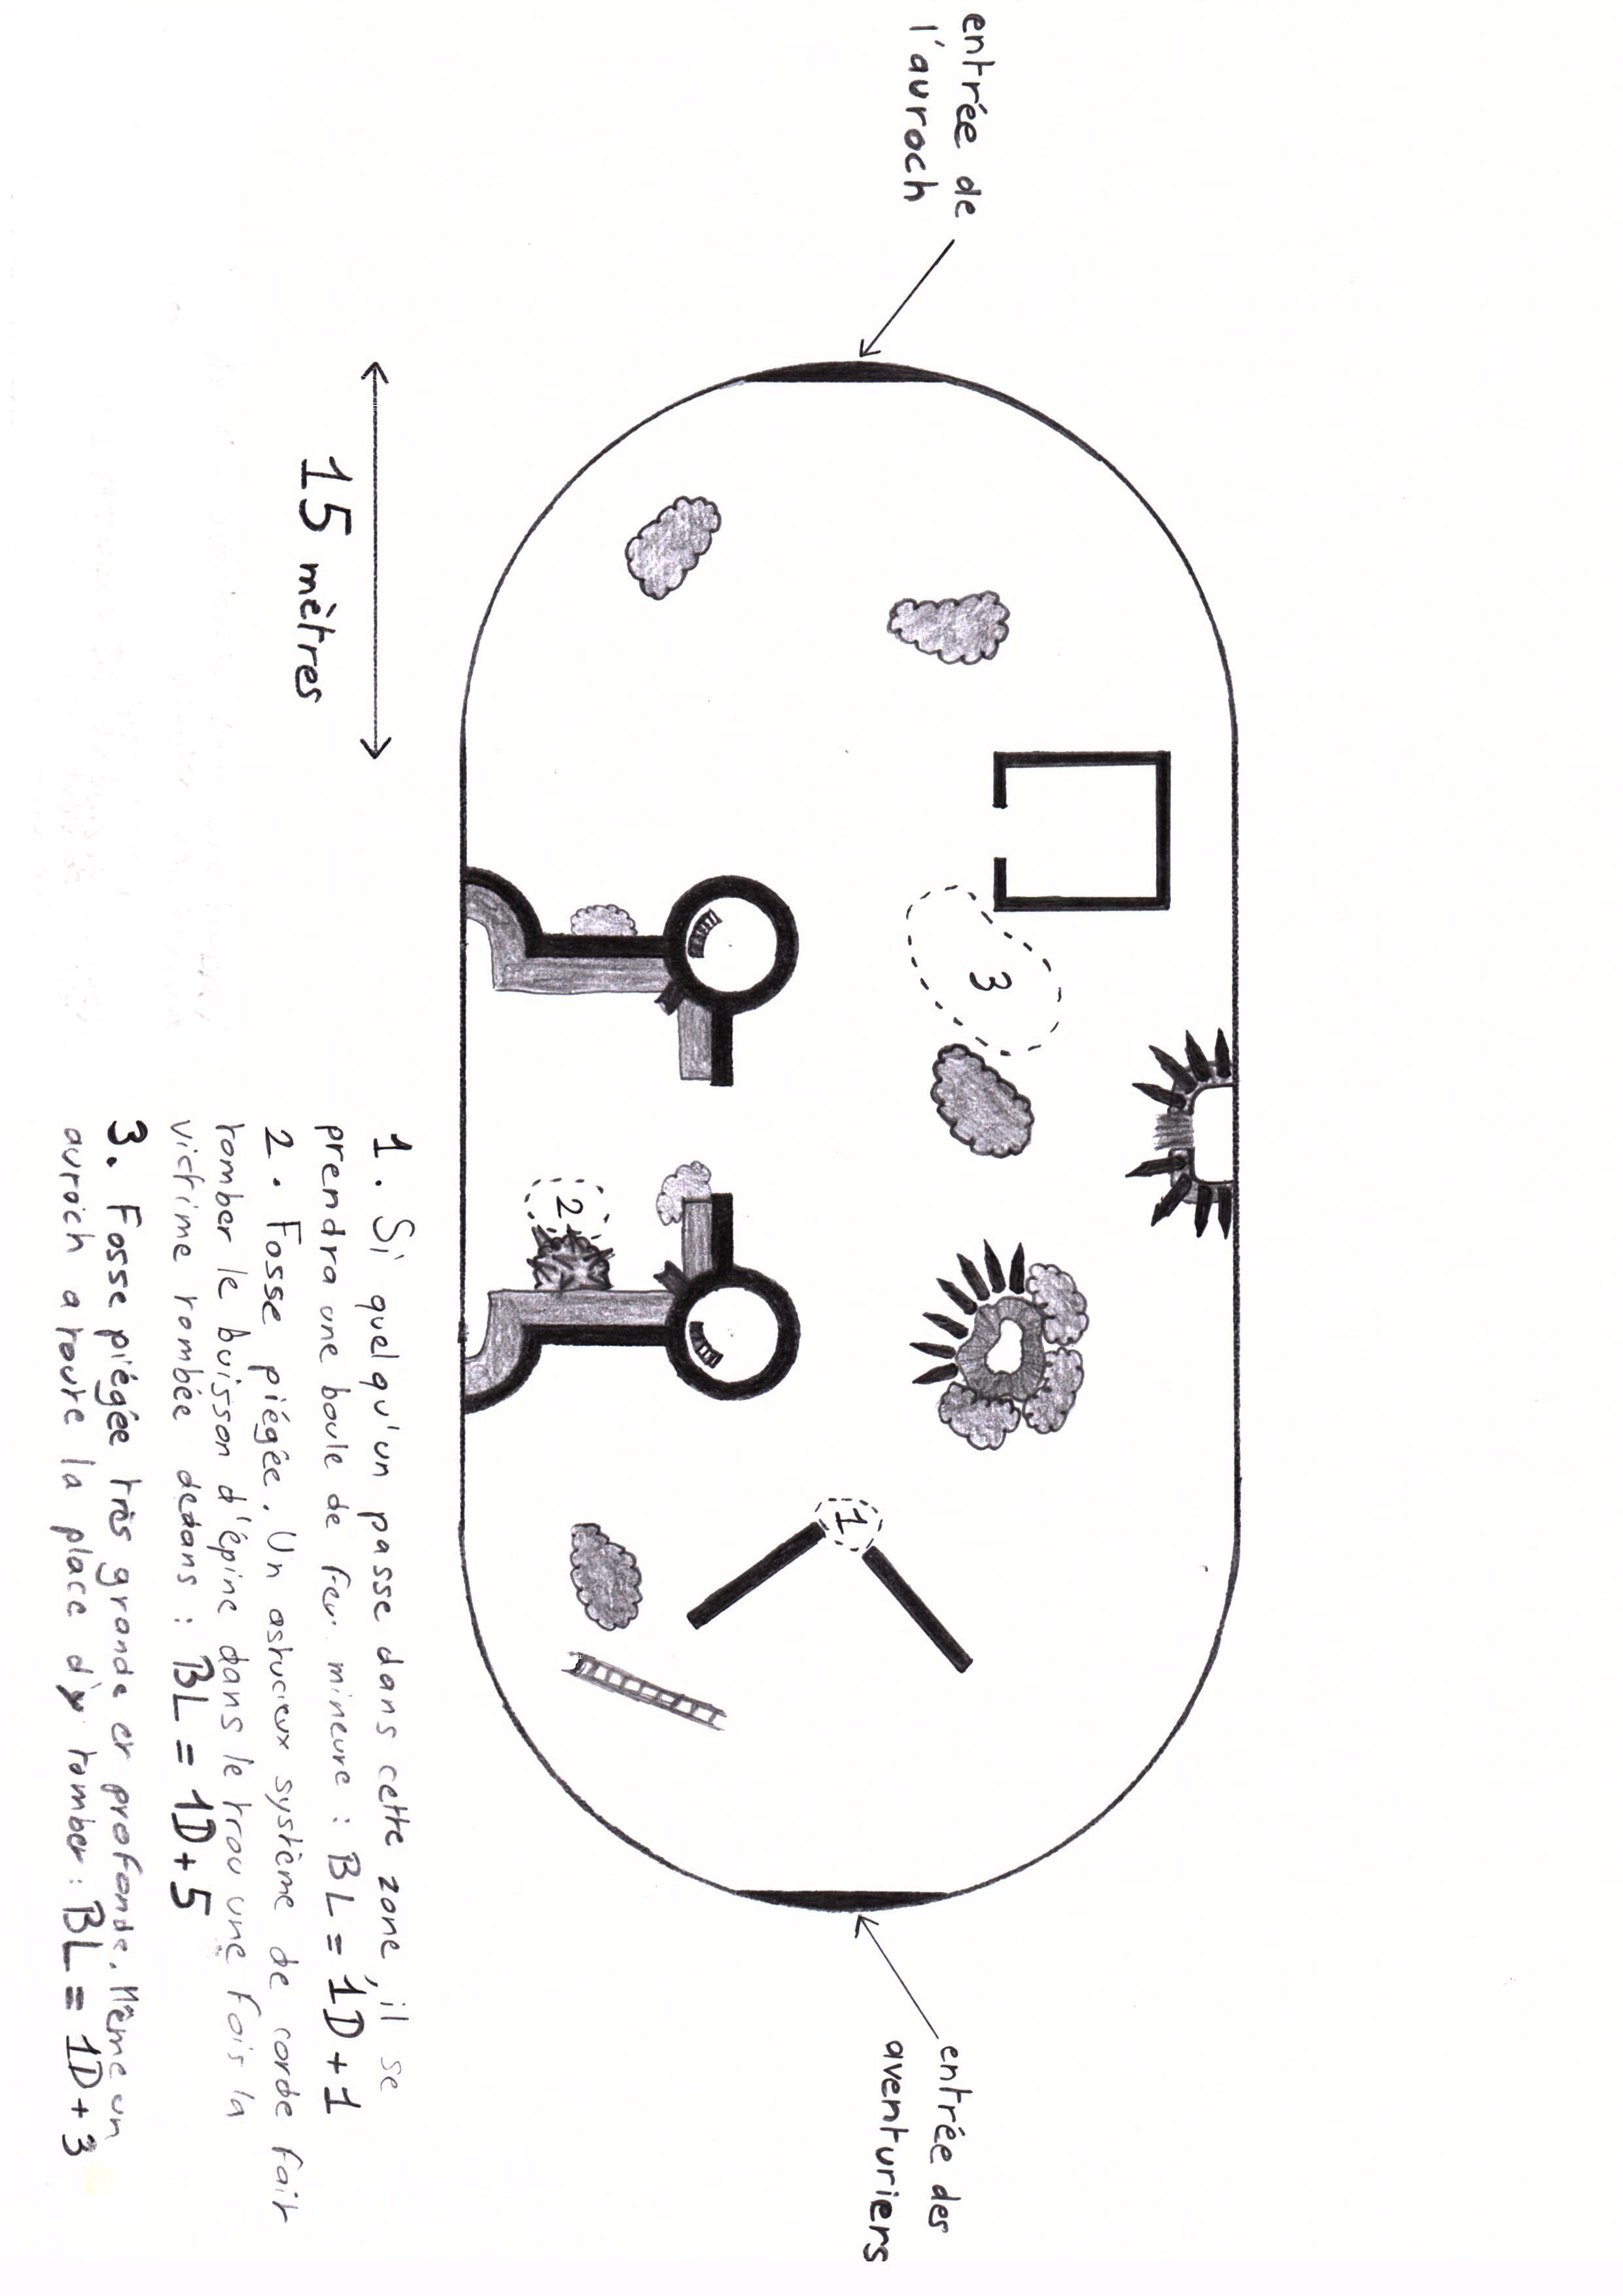 entrée de
l'auroch
entrée des
aventuriers
3
1
2
15 mètres
1. Si quelqu'un passe dans cette zone, il se
prendra une boule de feu mineure : BL = 1D + 1
2. Fosse piégée. Un astucieux système de corde fait
tomber le buisson d'épine dans le trou une fois la
victime tombée dedans : BL = 1D + 5
3. Fosse piégée très grande et profonde. Même un
auroch a toute la place d'y tomber : BL = 1D + 3